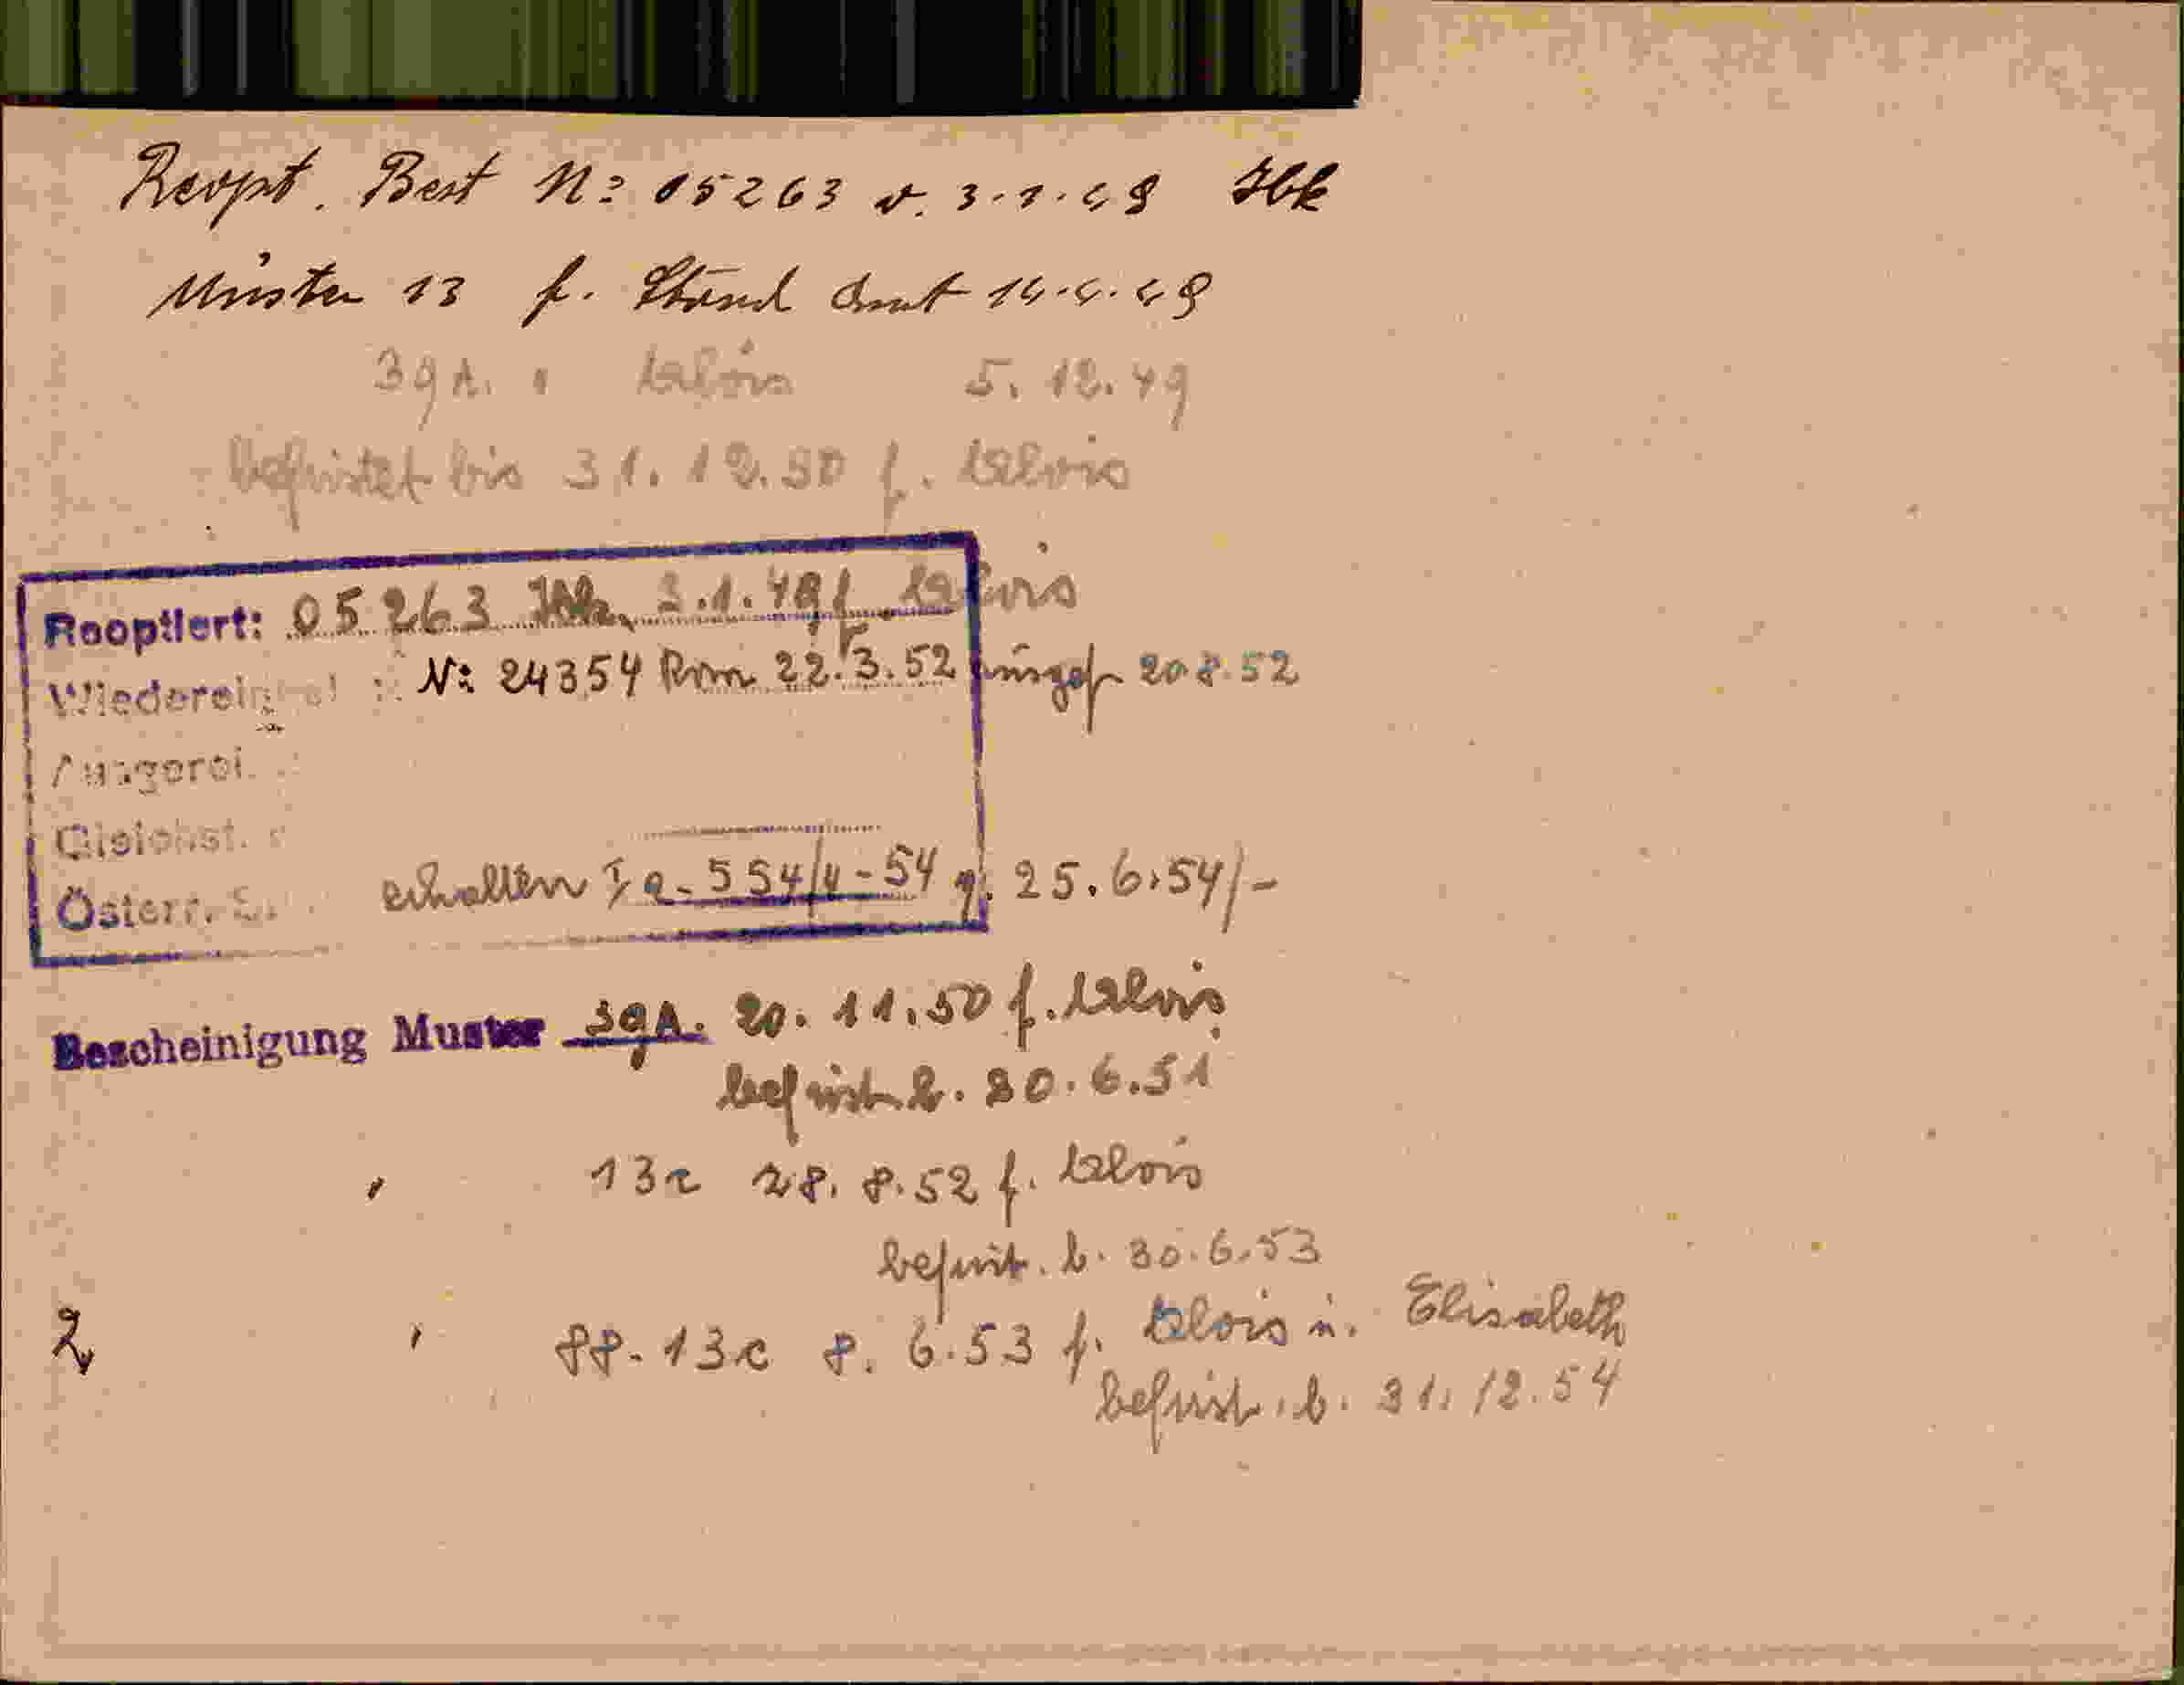 Reopt. Best Nº 05263 v. 3.1.49 Ibk
Muster 13 f. Stand Amt 14.4.49
39A. " Alois 5.12.49
befristet bis 31.12.50 f. Alois
Rooptiert: 05263 Ibk. 3.1.49 f. Alois
Nº 24354 Rom 22.3.52 20.8.52
Österr. erhalten Ia-554/4-54 25.6.54/-
Bescheinigung Muster 39A. 20.11.50 f. Alois
befrist. b. 30.6.51
" 13c 28.8.52 f. Alois
befrist. b. 30.6.53
2 " 88-13c 8.6.53 f. Alois u. Elisabeth
befrist. b. 31.12.54